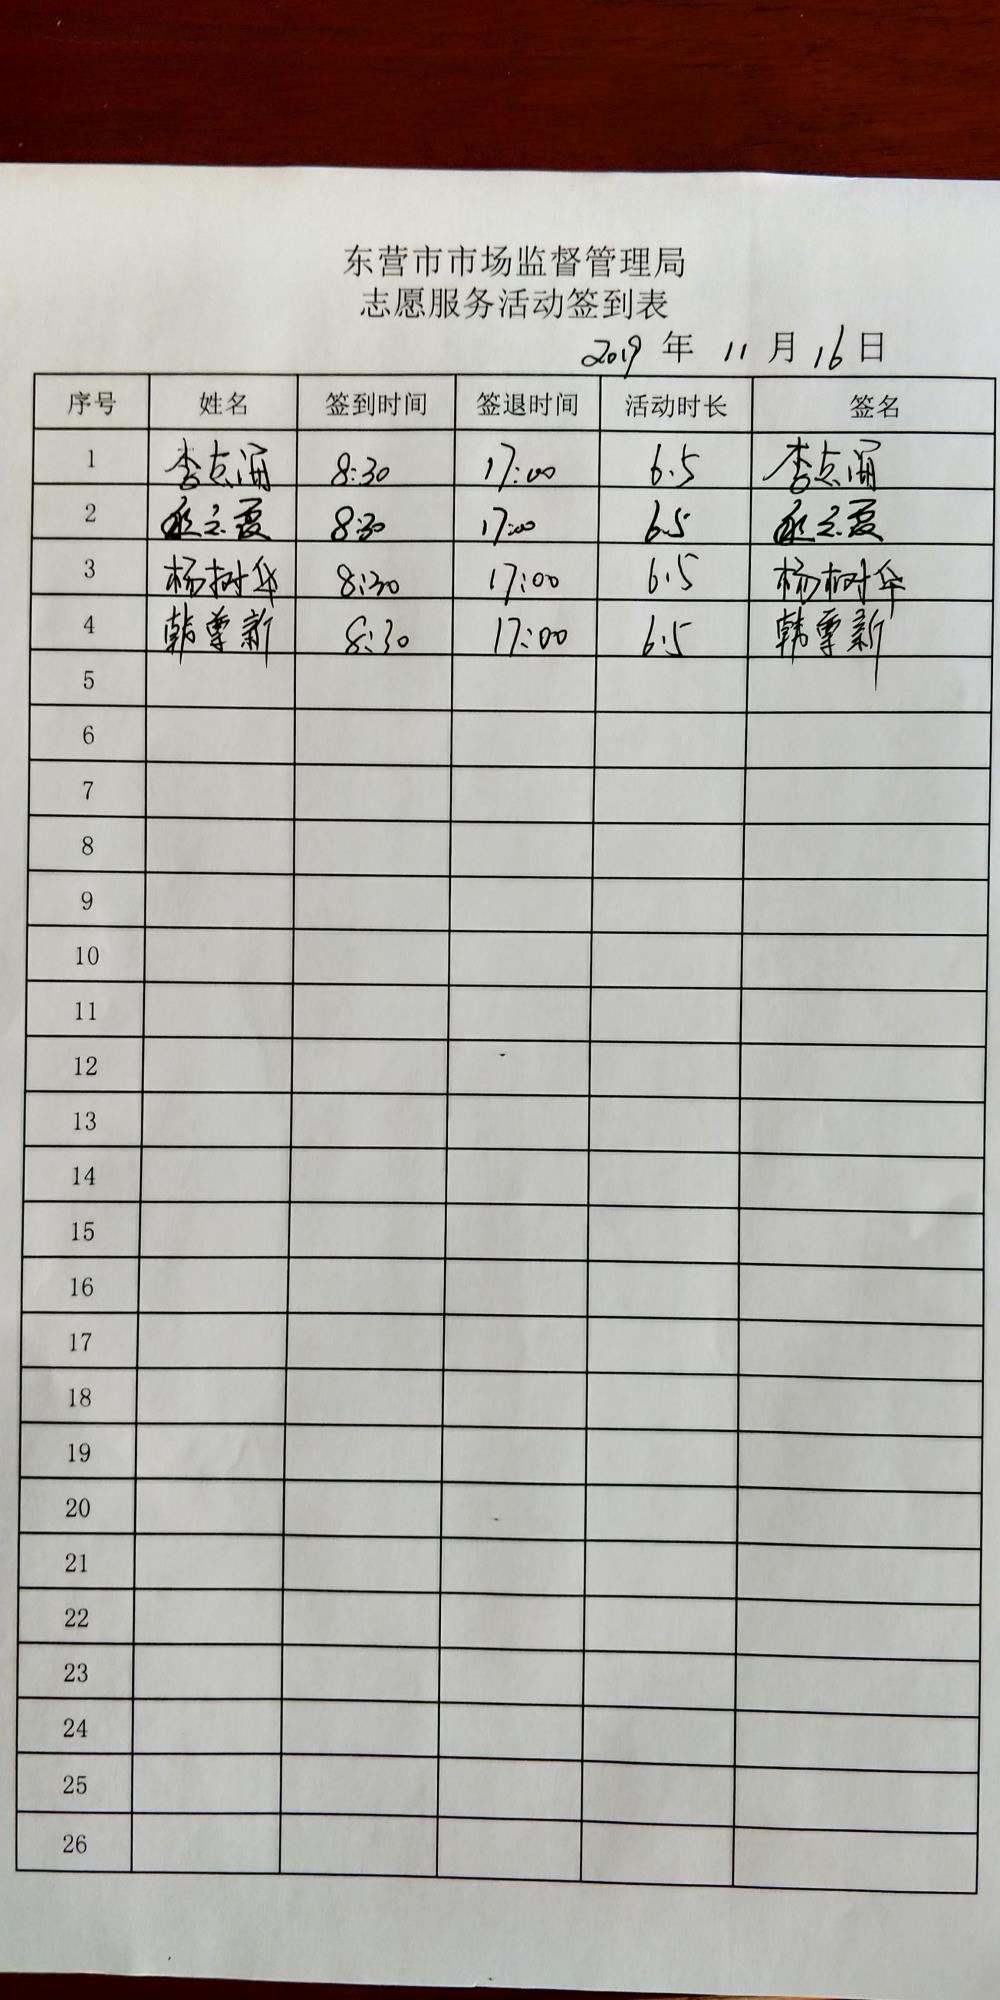 东营市市场监督管理局
志愿服务活动签到表
2019 年 11 月 16 日
序号 姓名 签到时间 签退时间 活动时长 签名
1 李点浦 8:30 17:00 6.5 李点浦
2 8:30 17:00 6.5
3 杨树华 8:30 17:00 6.5 杨树华
4 韩尊新 8:30 17:00 6.5 韩尊新
5
6
7
8
9
10
11
12
13
14
15
16
17
18
19
20
21
22
23
24
25
26